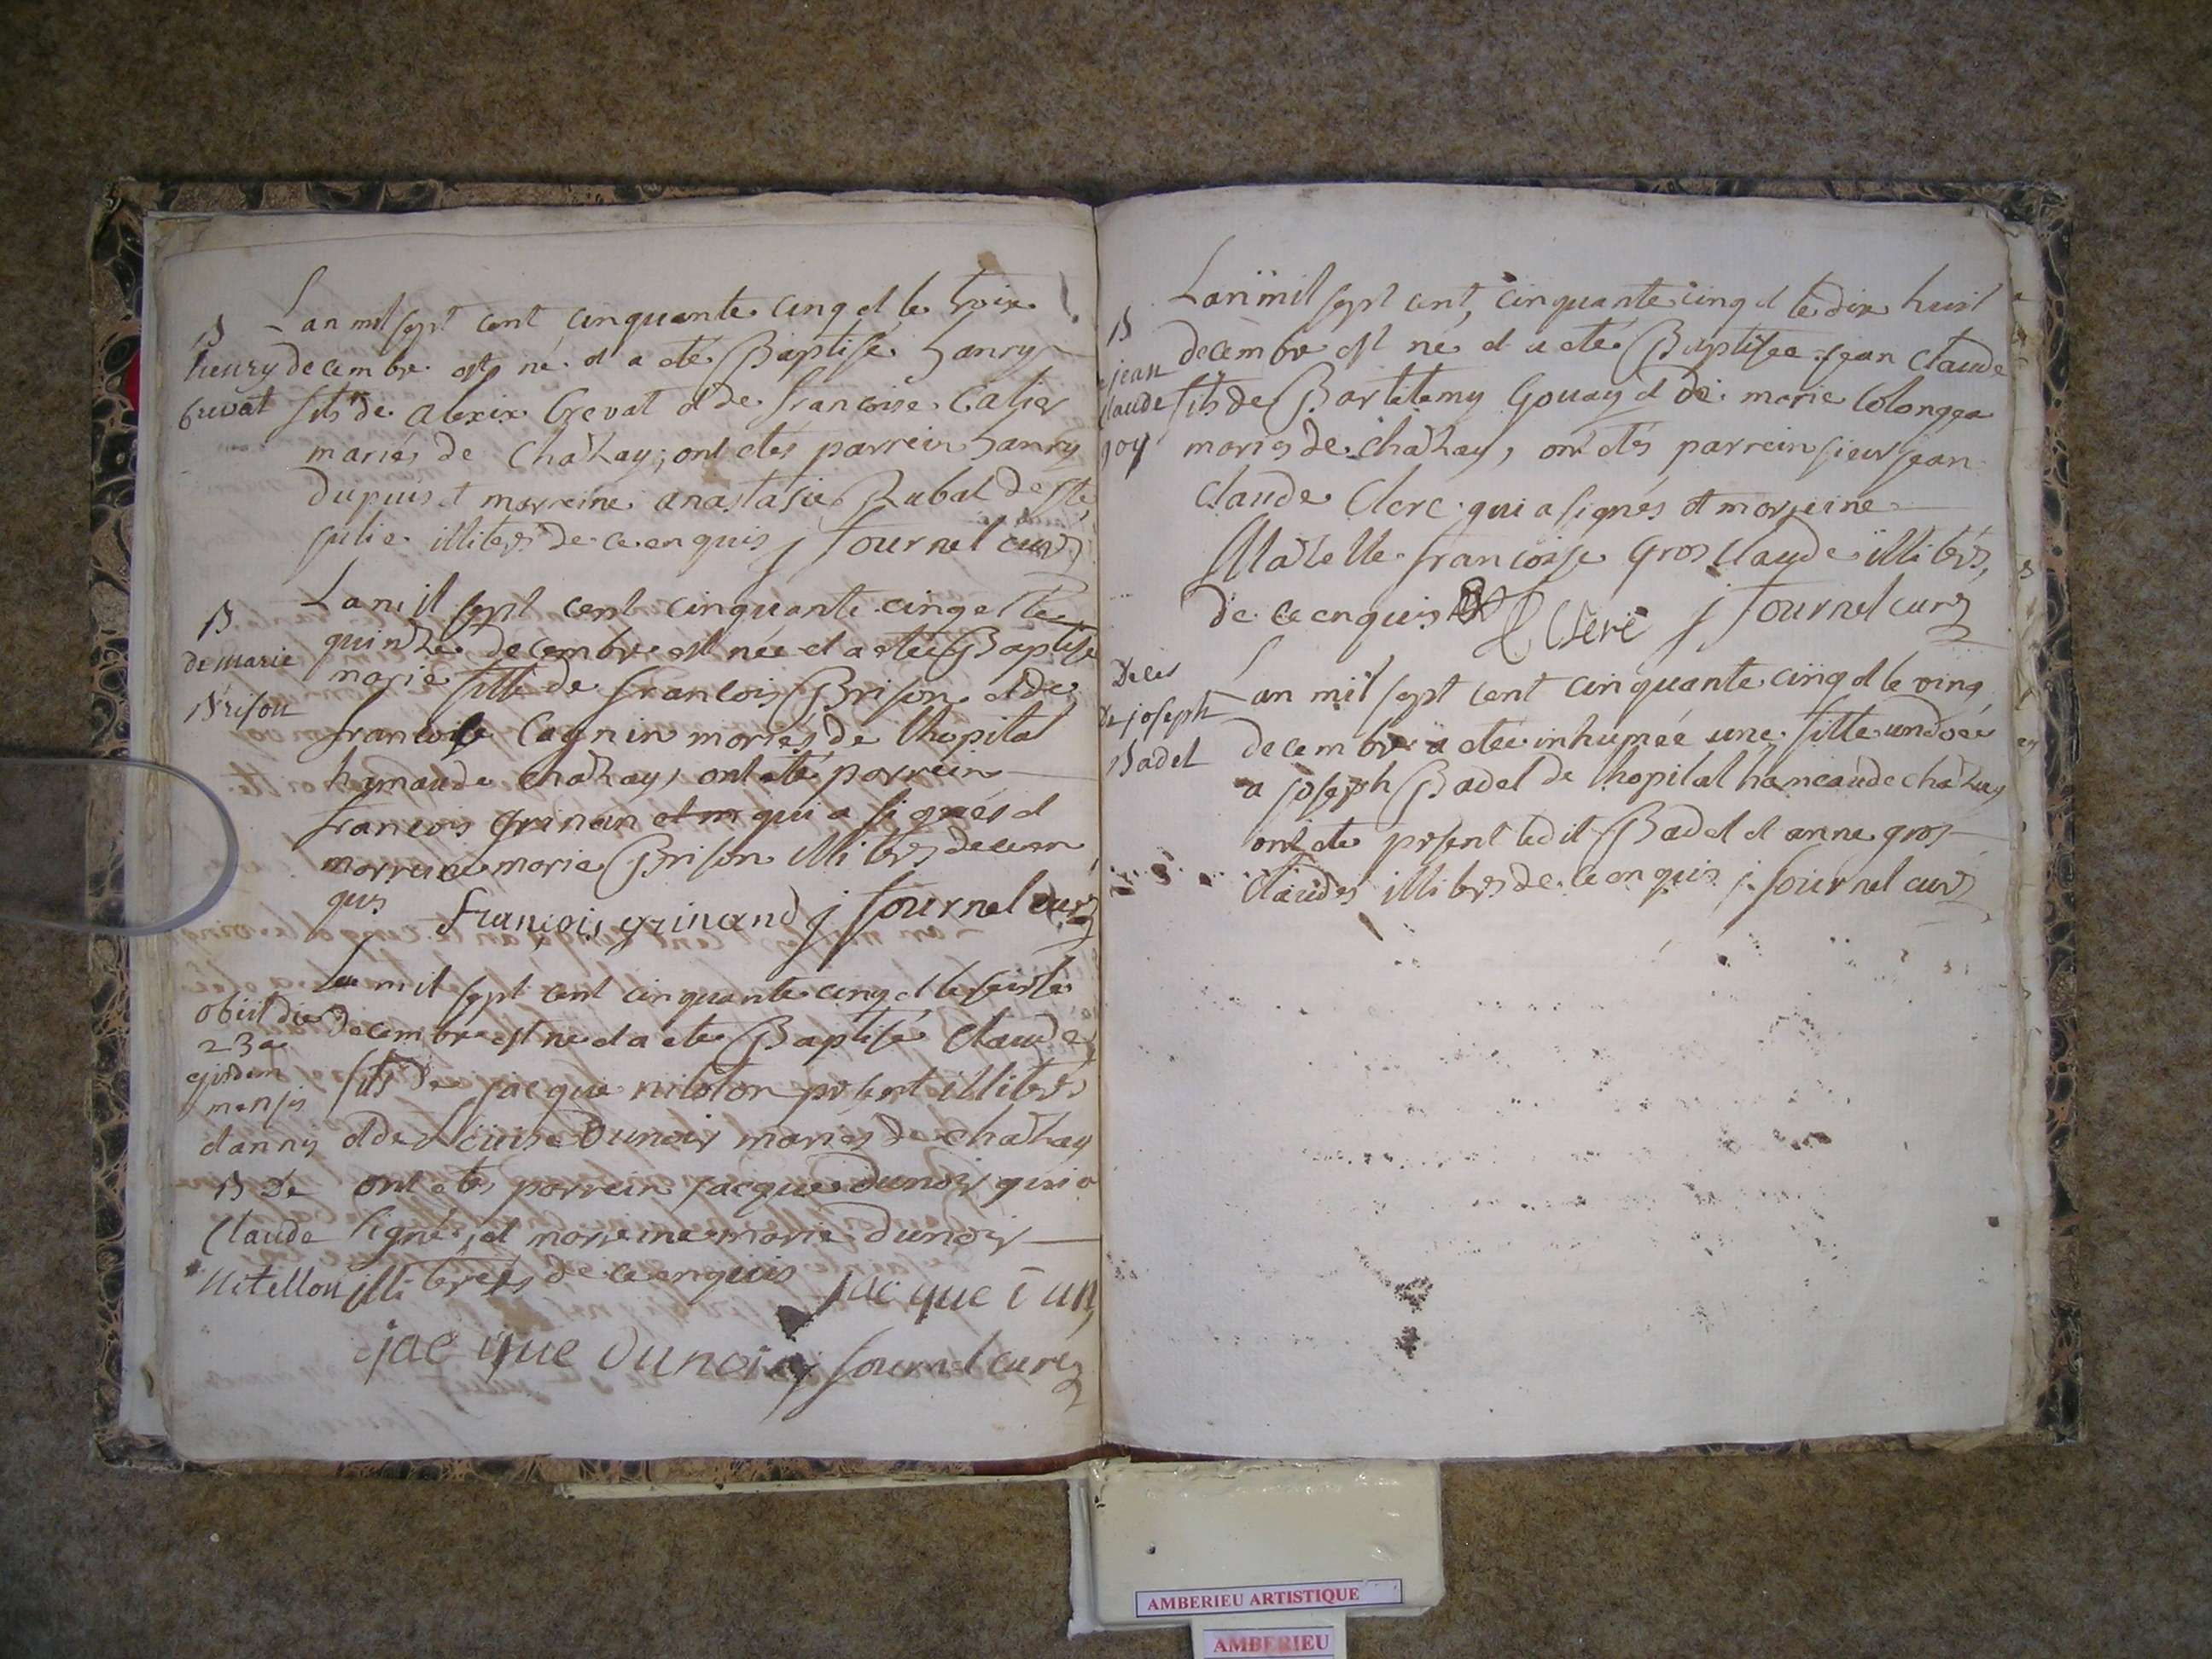 B
henry
Crevat
Lan mil sept cent cinquante cinq et le troix
decembre est né et a eté Baptise hanry
fils de alexix Crevat et de francoise Calier
mariés de Chazay; ont etés parrein hanry
dupuis et marreine anastasie Rubat de Ste
julie illiters de ce enquis j fournel curé
B
de marie
Brison
Lan mil sept cent cinquante cinq et le
quinze decembre est née et a eteé Baptise
marie fille de francois Brison et de
francoise Cagnin mariés de lhopital
hamau de chazay, ont eté parrein
francois grinan et m qui a signés et
marreine marie Brison illiters de ce en
quis francois grinand j fournel curé
obiit die
23a
ejusdem
mensis
et anny
B de
Claude
Nitellon
Lan mil sept cent cinquante cinq et le seize
decembre est né et a ete Baptisé Claude
fils de jacque nitolon present illiters
et de Louise Dunoir mariés de chazay
ont etés parrein jacque dunoir qui a
signé, et marreine marie dunoir
illiterés de ce enquis jacque dun
jacque dunoir j fournel curé
B
jean
Claude
goy
Lan mil sept cent, cinquante cinq et le dix huit
decembre est né et a eté Baptisée jean Claude
fils de Bartelemy Gouay et de marie Colongea
mariés de chazay, ont etés parrein sieur jean
Claude Clerc qui a signés et marreine
Mazelle francoise Gros Claude illiters,
de ce enquis Clerc j fournel curé
Deces
de joseph
Badel
Lan mil sept cent cinquante cinq et le ving
decembre a eteé inhumée une fille undoée
a joseph Badel de lhopital hameau de chazay
ont ete present ledit Badel et anne gros
Claudes illiters de ce enquis j. fournel curé
AMBERIEU ARTISTIQUE
AMBERIEU